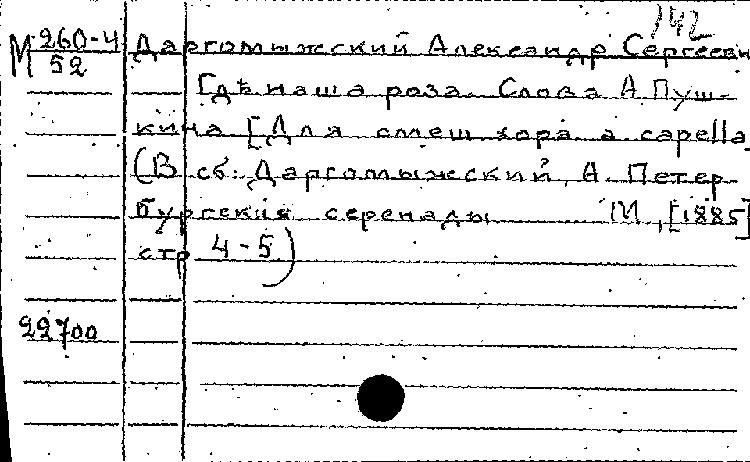 142
М 260-4
52
Даргомыжский Александр Сергеевич
Гдѣ наша роза. Слова А. Пуш-
кина [Для смеш. хора a capella]
(В сб.: Даргомыжский, А. Петер
бургския серенады М., [1885]
стр. 4-5)
22700